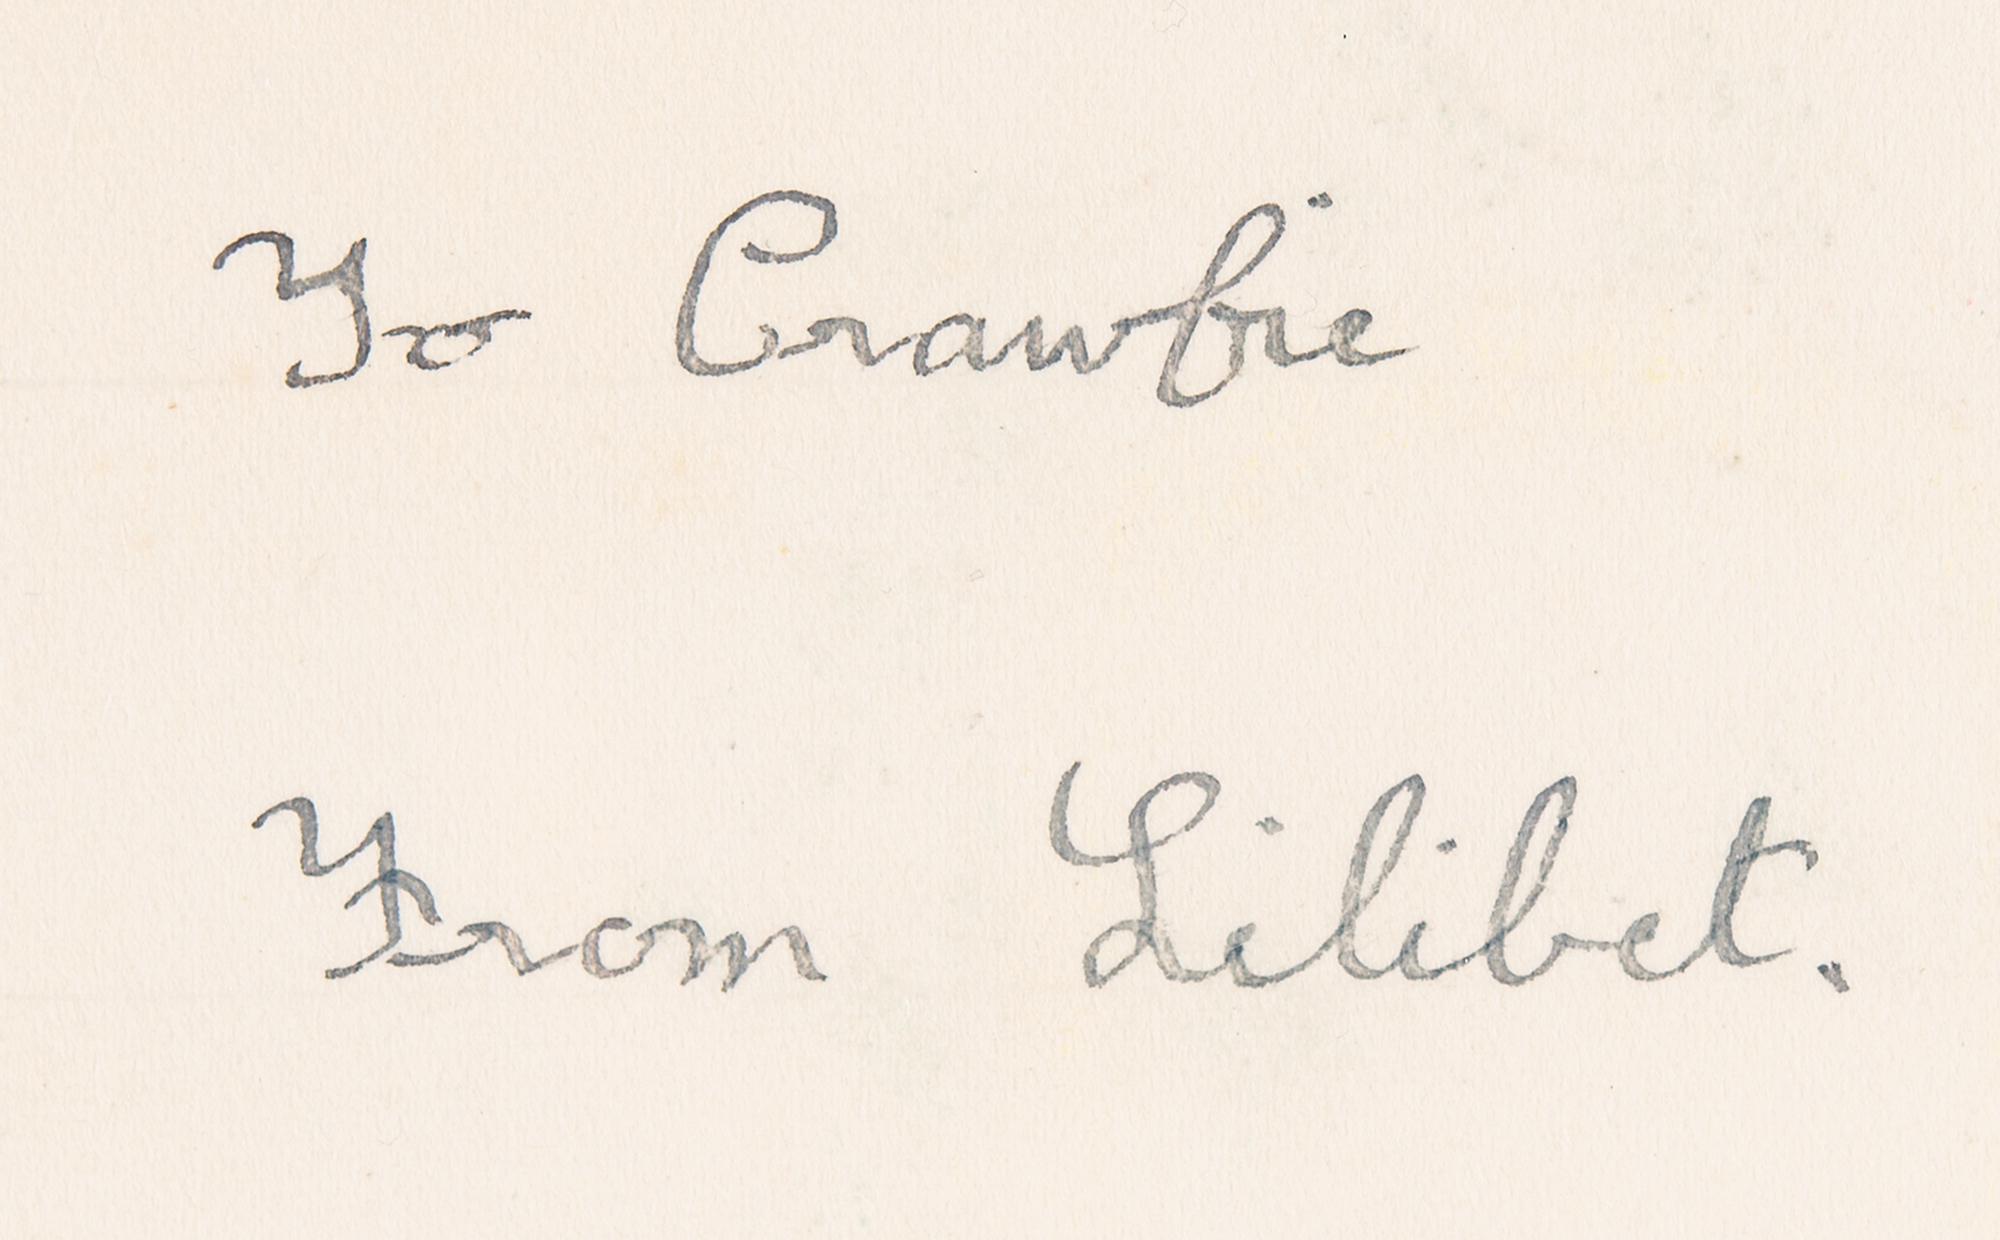 To Crawfie
From Lilibet.